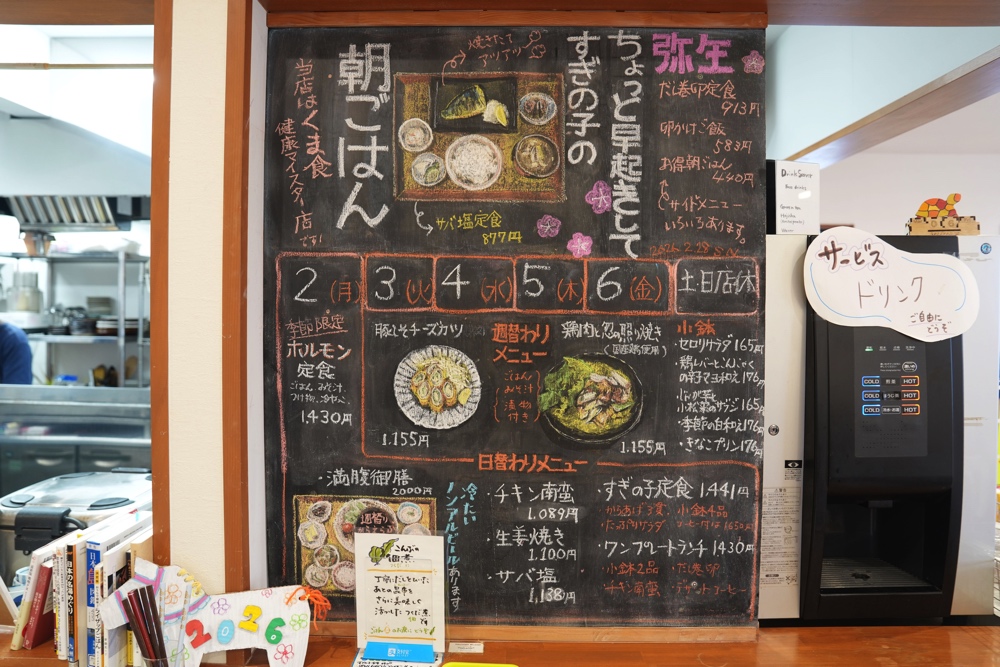 弥生
だし巻卵定食
913円
卵かけご飯
583円
お得朝ごはん
440円
サイドメニュー
いろいろあります。
ちょっと早起きして
すぎの子の
朝ごはん
焼きたて
アツアツ
サバ塩定食
877円
当店は、くま食
健康マイスター店
です!
2(月)
3(火)
4(水)
5(木)
6(金)
土日店休
季節限定
ホルモン
定食
ごはん、みそ汁、
1430円
豚しそチーズカツ
1.155円
週替わり
メニュー
ごはん
みそ汁
漬物
付き
鶏肉と忽の照り焼き
(国産鶏使用)
1.155円
小鉢
・セロリサラダ165円
・鶏レバーとこんにゃく
の辛子マヨ和え176円
小松菜のサラダ165
・季節の白和え176円
・きなこプリン176円
日替わりメニュー
・満腹御膳
2000円
週替り
冷たい
ノンアルビールあります!
・チキン南蛮
1.089円
・生姜焼き
1.100円
・サバ塩
1,138円
・すぎの子定食1441円
からあげ3変、小鉢4品
・ワンプレートランチ1430円
小鉢2品
チキン南蛮
サービス
ドリンク
ご自由に
どうぞ
COLD
HOT
COLD
HOT
COLD
HOT
こんぶの
佃煮
2026